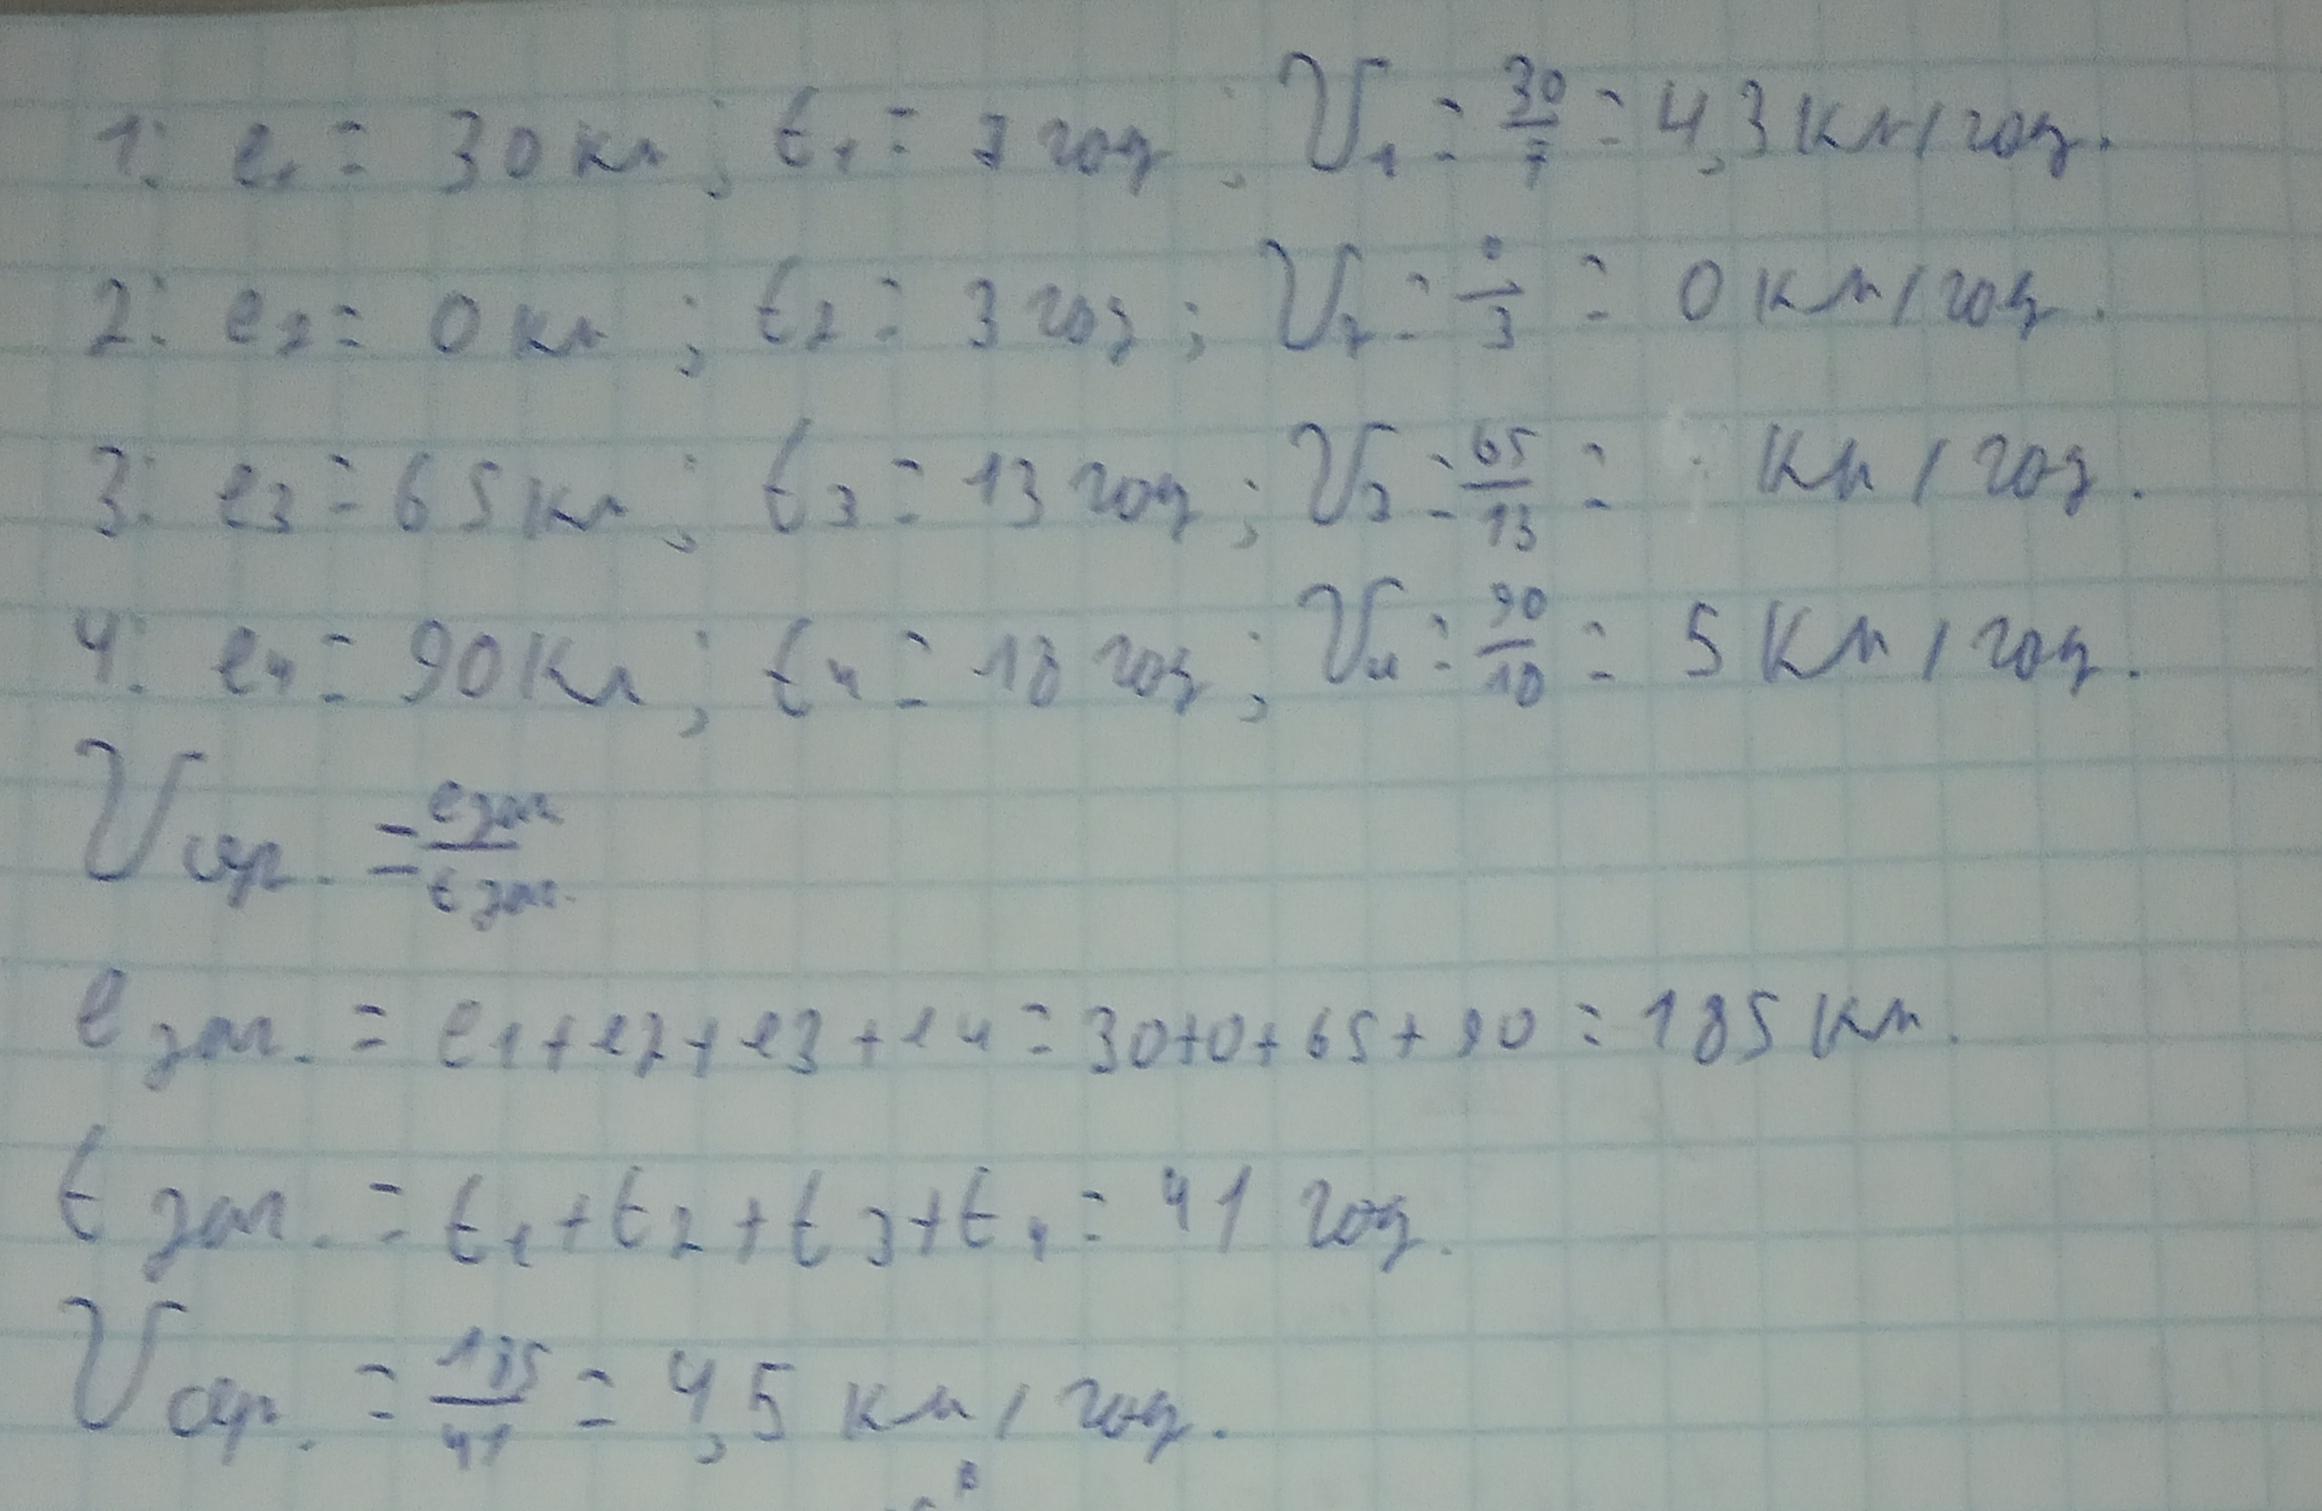 1: l₁ = 30 км ; t₁ = 7 год ; V₁ = 30/7 = 4,3 км/год.
2: l₂ = 0 км ; t₂ = 3 год ; V₂ = 0/3 = 0 км/год.
3: l₃ = 65 км ; t₃ = 13 год ; V₃ = 65/13 = км/год.
4: l₄ = 90 км ; t₄ = 18 год ; V₄ = 90/18 = 5 км/год.
Vсер. = lзаг./tзаг.
lзаг. = l₁+l₂+l₃+l₄ = 30+0+65+90 = 185 км.
tзаг. = t₁+t₂+t₃+t₄ = 41 год.
Vсер. = 185/41 = 4,5 км/год.